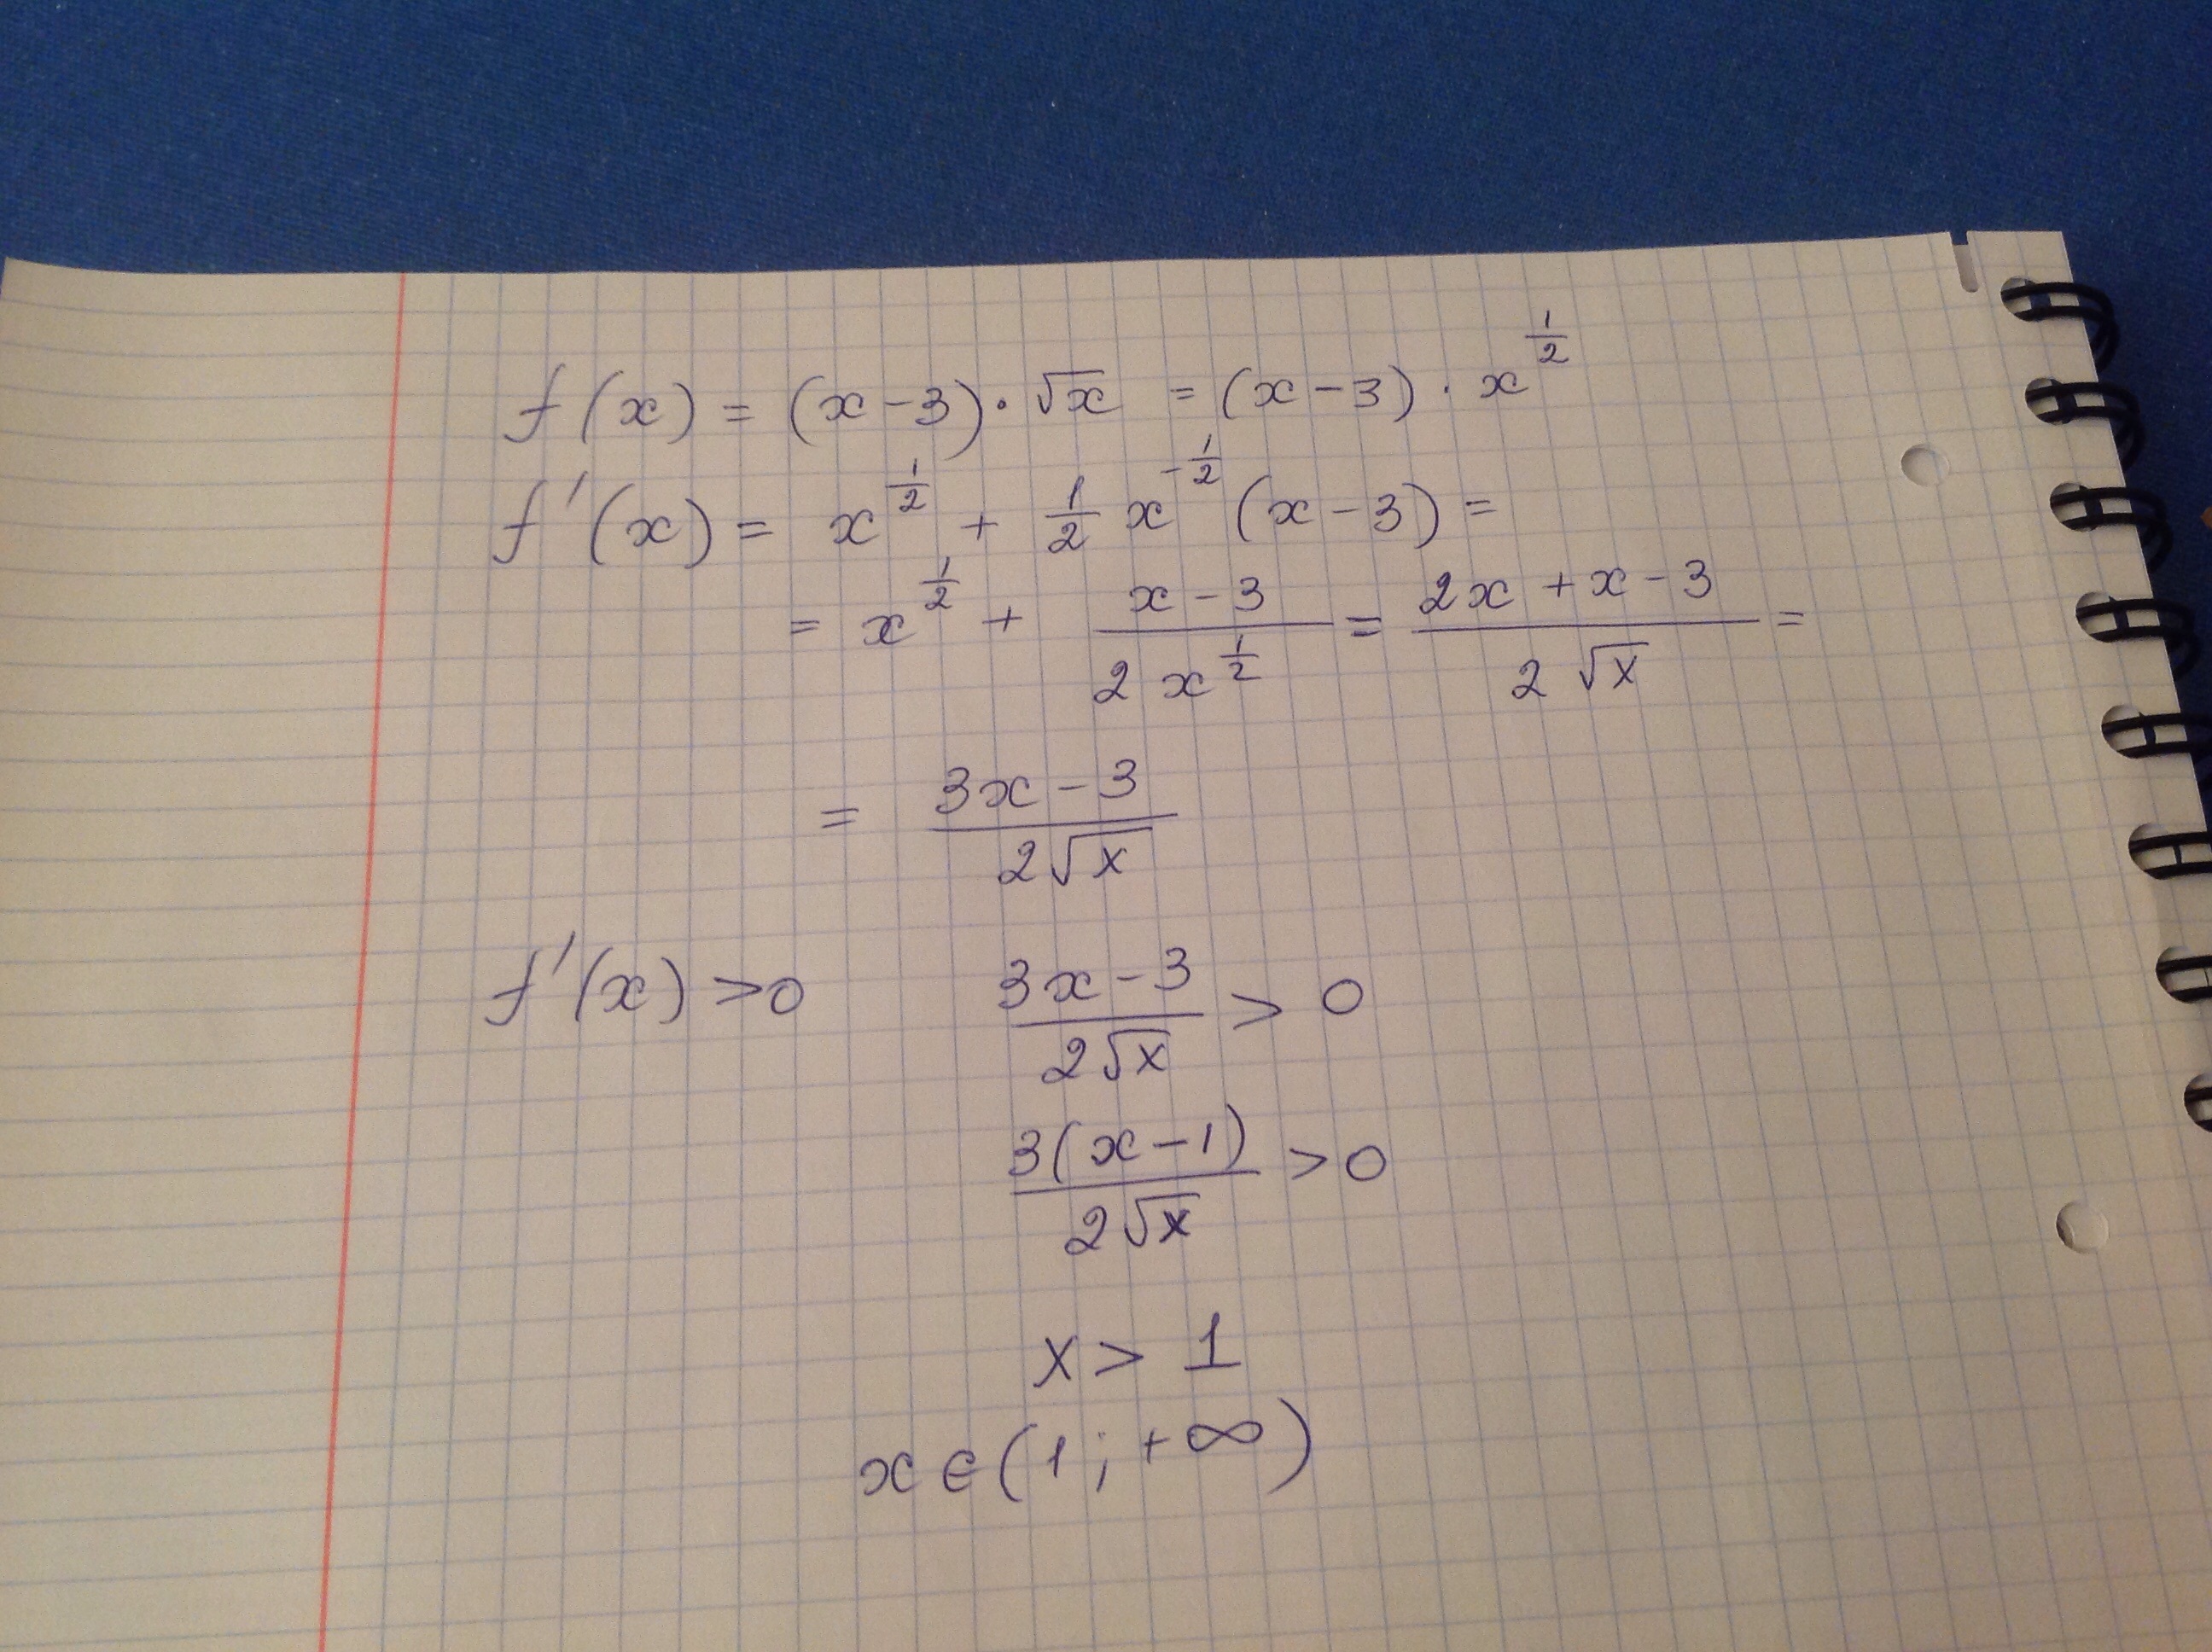 f(x) = (x-3)·√x = (x-3)·x^(1/2)
f'(x) = x^(1/2) + 1/2 x^(-1/2) (x-3) =
= x^(1/2) + (x-3)/(2x^(1/2)) = (2x+x-3)/(2√x) =
= (3x-3)/(2√x)
f'(x)>0 (3x-3)/(2√x) > 0
3(x-1)/(2√x) >0
x> 1
x∈(1;+∞)